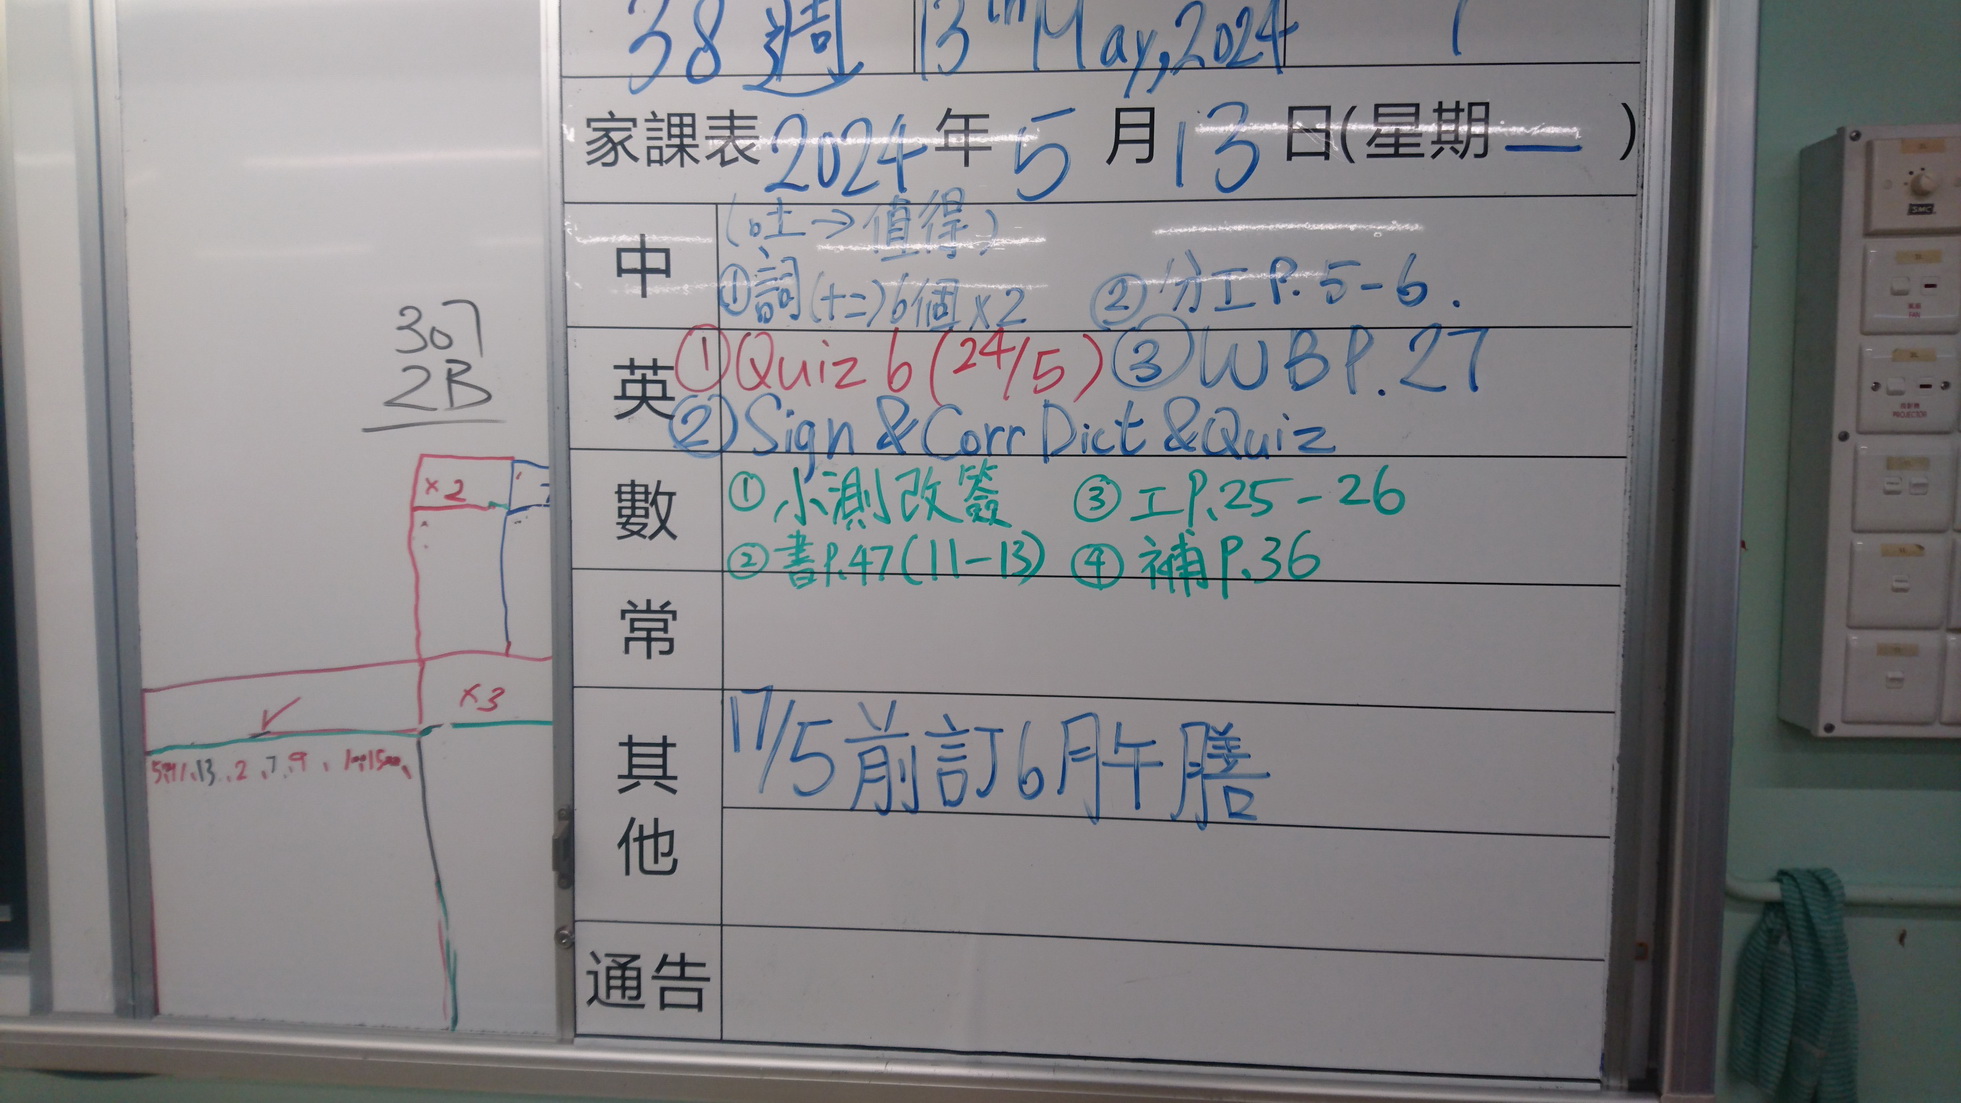 38週 13th May, 2024
家課表 2024年 5月 13日(星期一)
中
(吐→值得)
①詞(十二)6個×2 ②分工P.5-6.
英
①Quiz 6 (24/5) ③WB P.27
②Sign & Corr Dict & Quiz
數
①小測改簽 ③工P.25-26
②書P.47(11-13) ④補P.36
常
其他
17/5前訂6月午膳
通告
307
2B
×2
×3
PROJECTOR